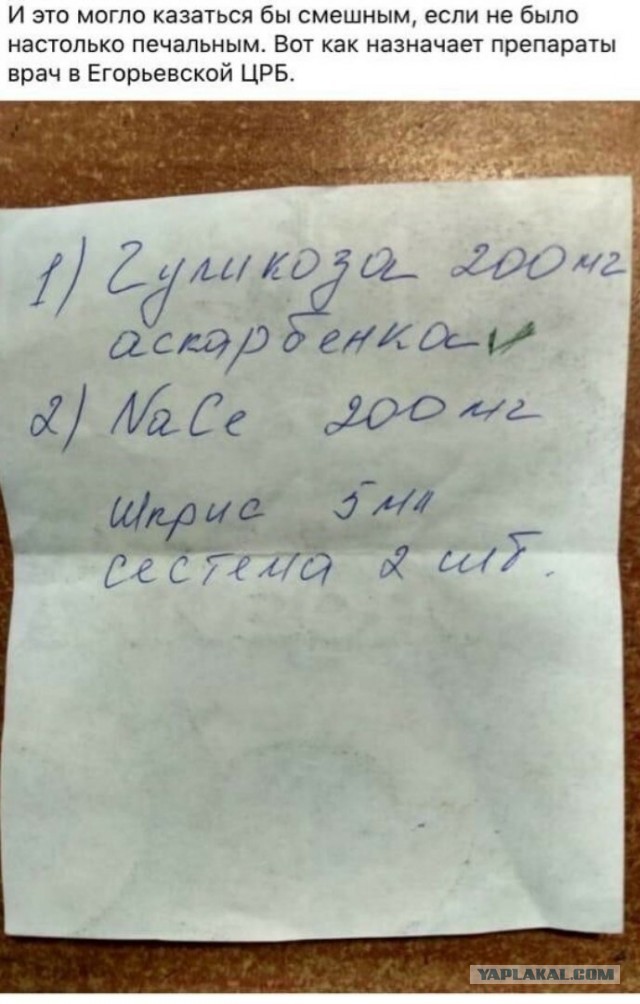 И это могло казаться бы смешным, если не было
настолько печальным. Вот как назначает препараты
врач в Егорьевской ЦРБ.
1) Гуликоза 200 мг
аскарбенка
2) NaCe 200 мг
Шприс 5 мл
сестема 2 шт.
YAPLAKAL.COM